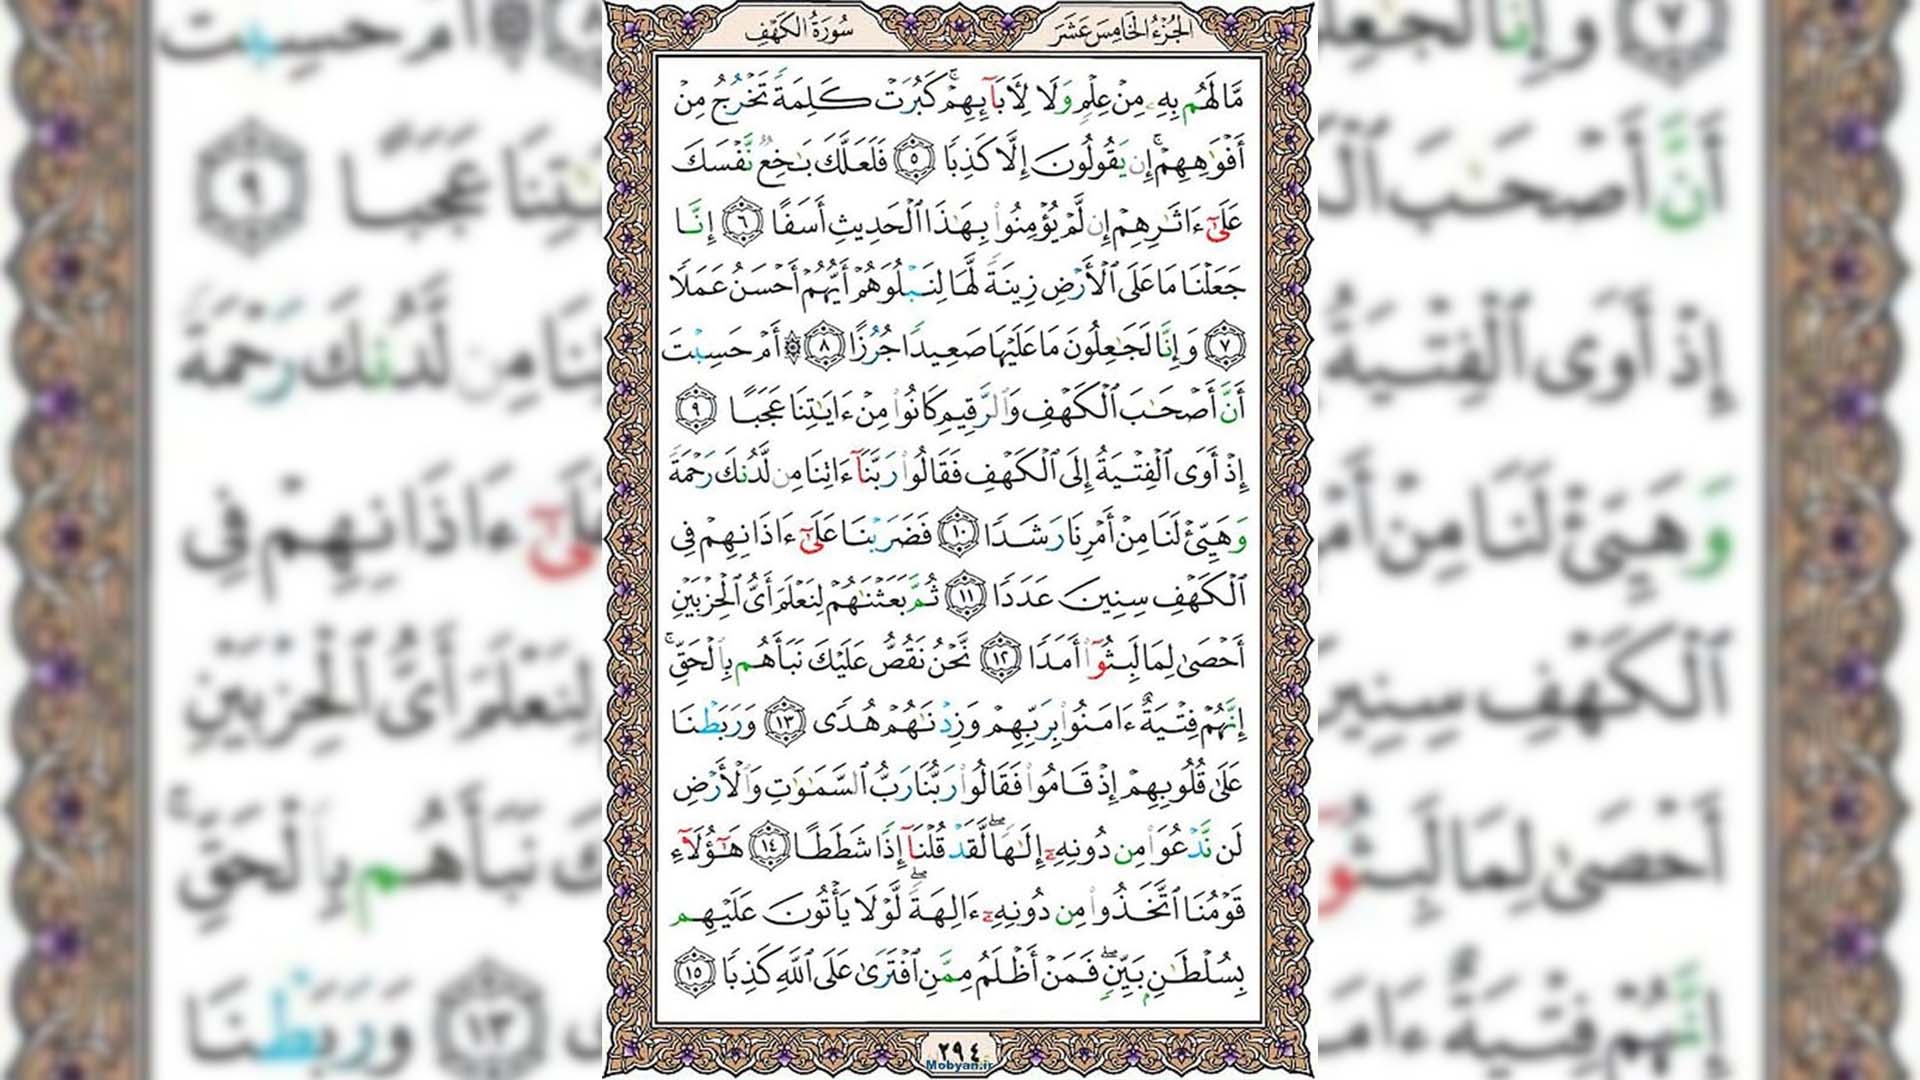 الجُزْءُ الخَامِسَ عَشَرَ
سُورَةُ الكَهْفِ
مَّا لَهُم بِهِۦ مِنْ عِلْمٍ وَلَا لِأٓبَآئِهِمْ ۚ كَبُرَتْ كَلِمَةً تَخْرُجُ مِنْ
أَفْوَٰهِهِمْ ۚ إِن يَقُولُونَ إِلَّا كَذِبًا ٥ فَلَعَلَّكَ بَـٰخِعٌ نَّفْسَكَ
عَلَىٰٓ ءَاثَـٰرِهِمْ إِن لَّمْ يُؤْمِنُوا۟ بِهَـٰذَا ٱلْحَدِيثِ أَسَفًا ٦ إِنَّا
جَعَلْنَا مَا عَلَى ٱلْأَرْضِ زِينَةً لَّهَا لِنَبْلُوَهُمْ أَيُّهُمْ أَحْسَنُ عَمَلًا
٧ وَإِنَّا لَجَـٰعِلُونَ مَا عَلَيْهَا صَعِيدًا جُرُزًا ٨ ۞ أَمْ حَسِبْتَ
أَنَّ أَصْحَـٰبَ ٱلْكَهْفِ وَٱلرَّقِيمِ كَانُوا۟ مِنْ ءَايَـٰتِنَا عَجَبًا ٩
إِذْ أَوَى ٱلْفِتْيَةُ إِلَى ٱلْكَهْفِ فَقَالُوا۟ رَبَّنَآ ءَاتِنَا مِن لَّدُنكَ رَحْمَةً
وَهَيِّئْ لَنَا مِنْ أَمْرِنَا رَشَدًا ١٠ فَضَرَبْنَا عَلَىٰٓ ءَاذَانِهِمْ فِى
ٱلْكَهْفِ سِنِينَ عَدَدًا ١١ ثُمَّ بَعَثْنَـٰهُمْ لِنَعْلَمَ أَىُّ ٱلْحِزْبَيْنِ
أَحْصَىٰ لِمَا لَبِثُوٓا۟ أَمَدًا ١٢ نَّحْنُ نَقُصُّ عَلَيْكَ نَبَأَهُم بِٱلْحَقِّ ۚ
إِنَّهُمْ فِتْيَةٌ ءَامَنُوا۟ بِرَبِّهِمْ وَزِدْنَـٰهُمْ هُدًى ١٣ وَرَبَطْنَا
عَلَىٰ قُلُوبِهِمْ إِذْ قَامُوا۟ فَقَالُوا۟ رَبُّنَا رَبُّ ٱلسَّمَـٰوَٰتِ وَٱلْأَرْضِ
لَن نَّدْعُوَا۟ مِن دُونِهِۦٓ إِلَـٰهًا ۖ لَّقَدْ قُلْنَآ إِذًا شَطَطًا ١٤ هَـٰٓؤُلَآءِ
قَوْمُنَا ٱتَّخَذُوا۟ مِن دُونِهِۦٓ ءَالِهَةً ۖ لَّوْلَا يَأْتُونَ عَلَيْهِم
بِسُلْطَـٰنٍۭ بَيِّنٍ ۖ فَمَنْ أَظْلَمُ مِمَّنِ ٱفْتَرَىٰ عَلَى ٱللَّهِ كَذِبًا ١٥
٢٩٤
Mobyan.ir